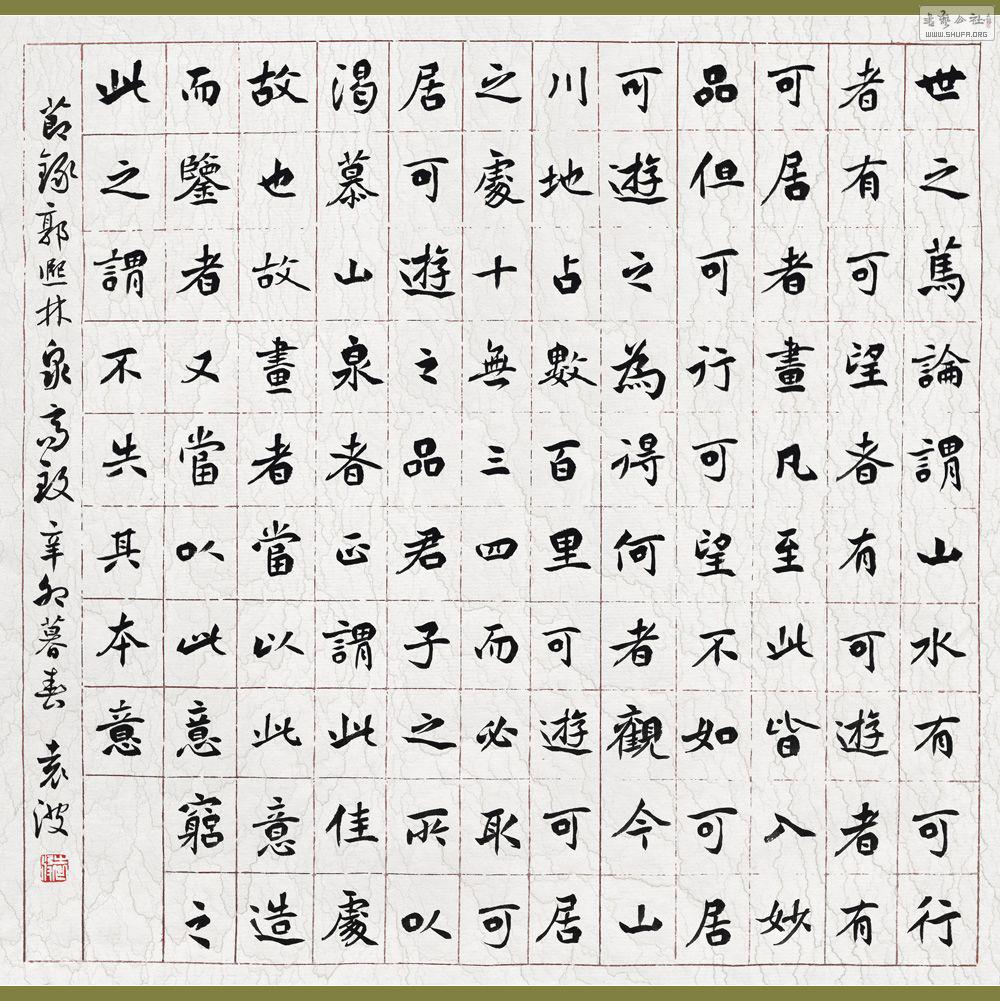 世之篤論謂山水有可行
者有可望者有可遊者有
可居者畫凡至此皆入妙
品但可行可望不如可居
可遊之為得何者觀今山
川地占數百里可遊可居
之處十無三四而必取可
居可遊之品君子之所以
渴慕山泉者正謂此佳處
故也故畫者當以此意造
而鑒者又當以此意窮之
此之謂不失其本意
節錄郭熙林泉高致 辛卯暮春 袁波
書藝公社
WWW.SHUFA.ORG